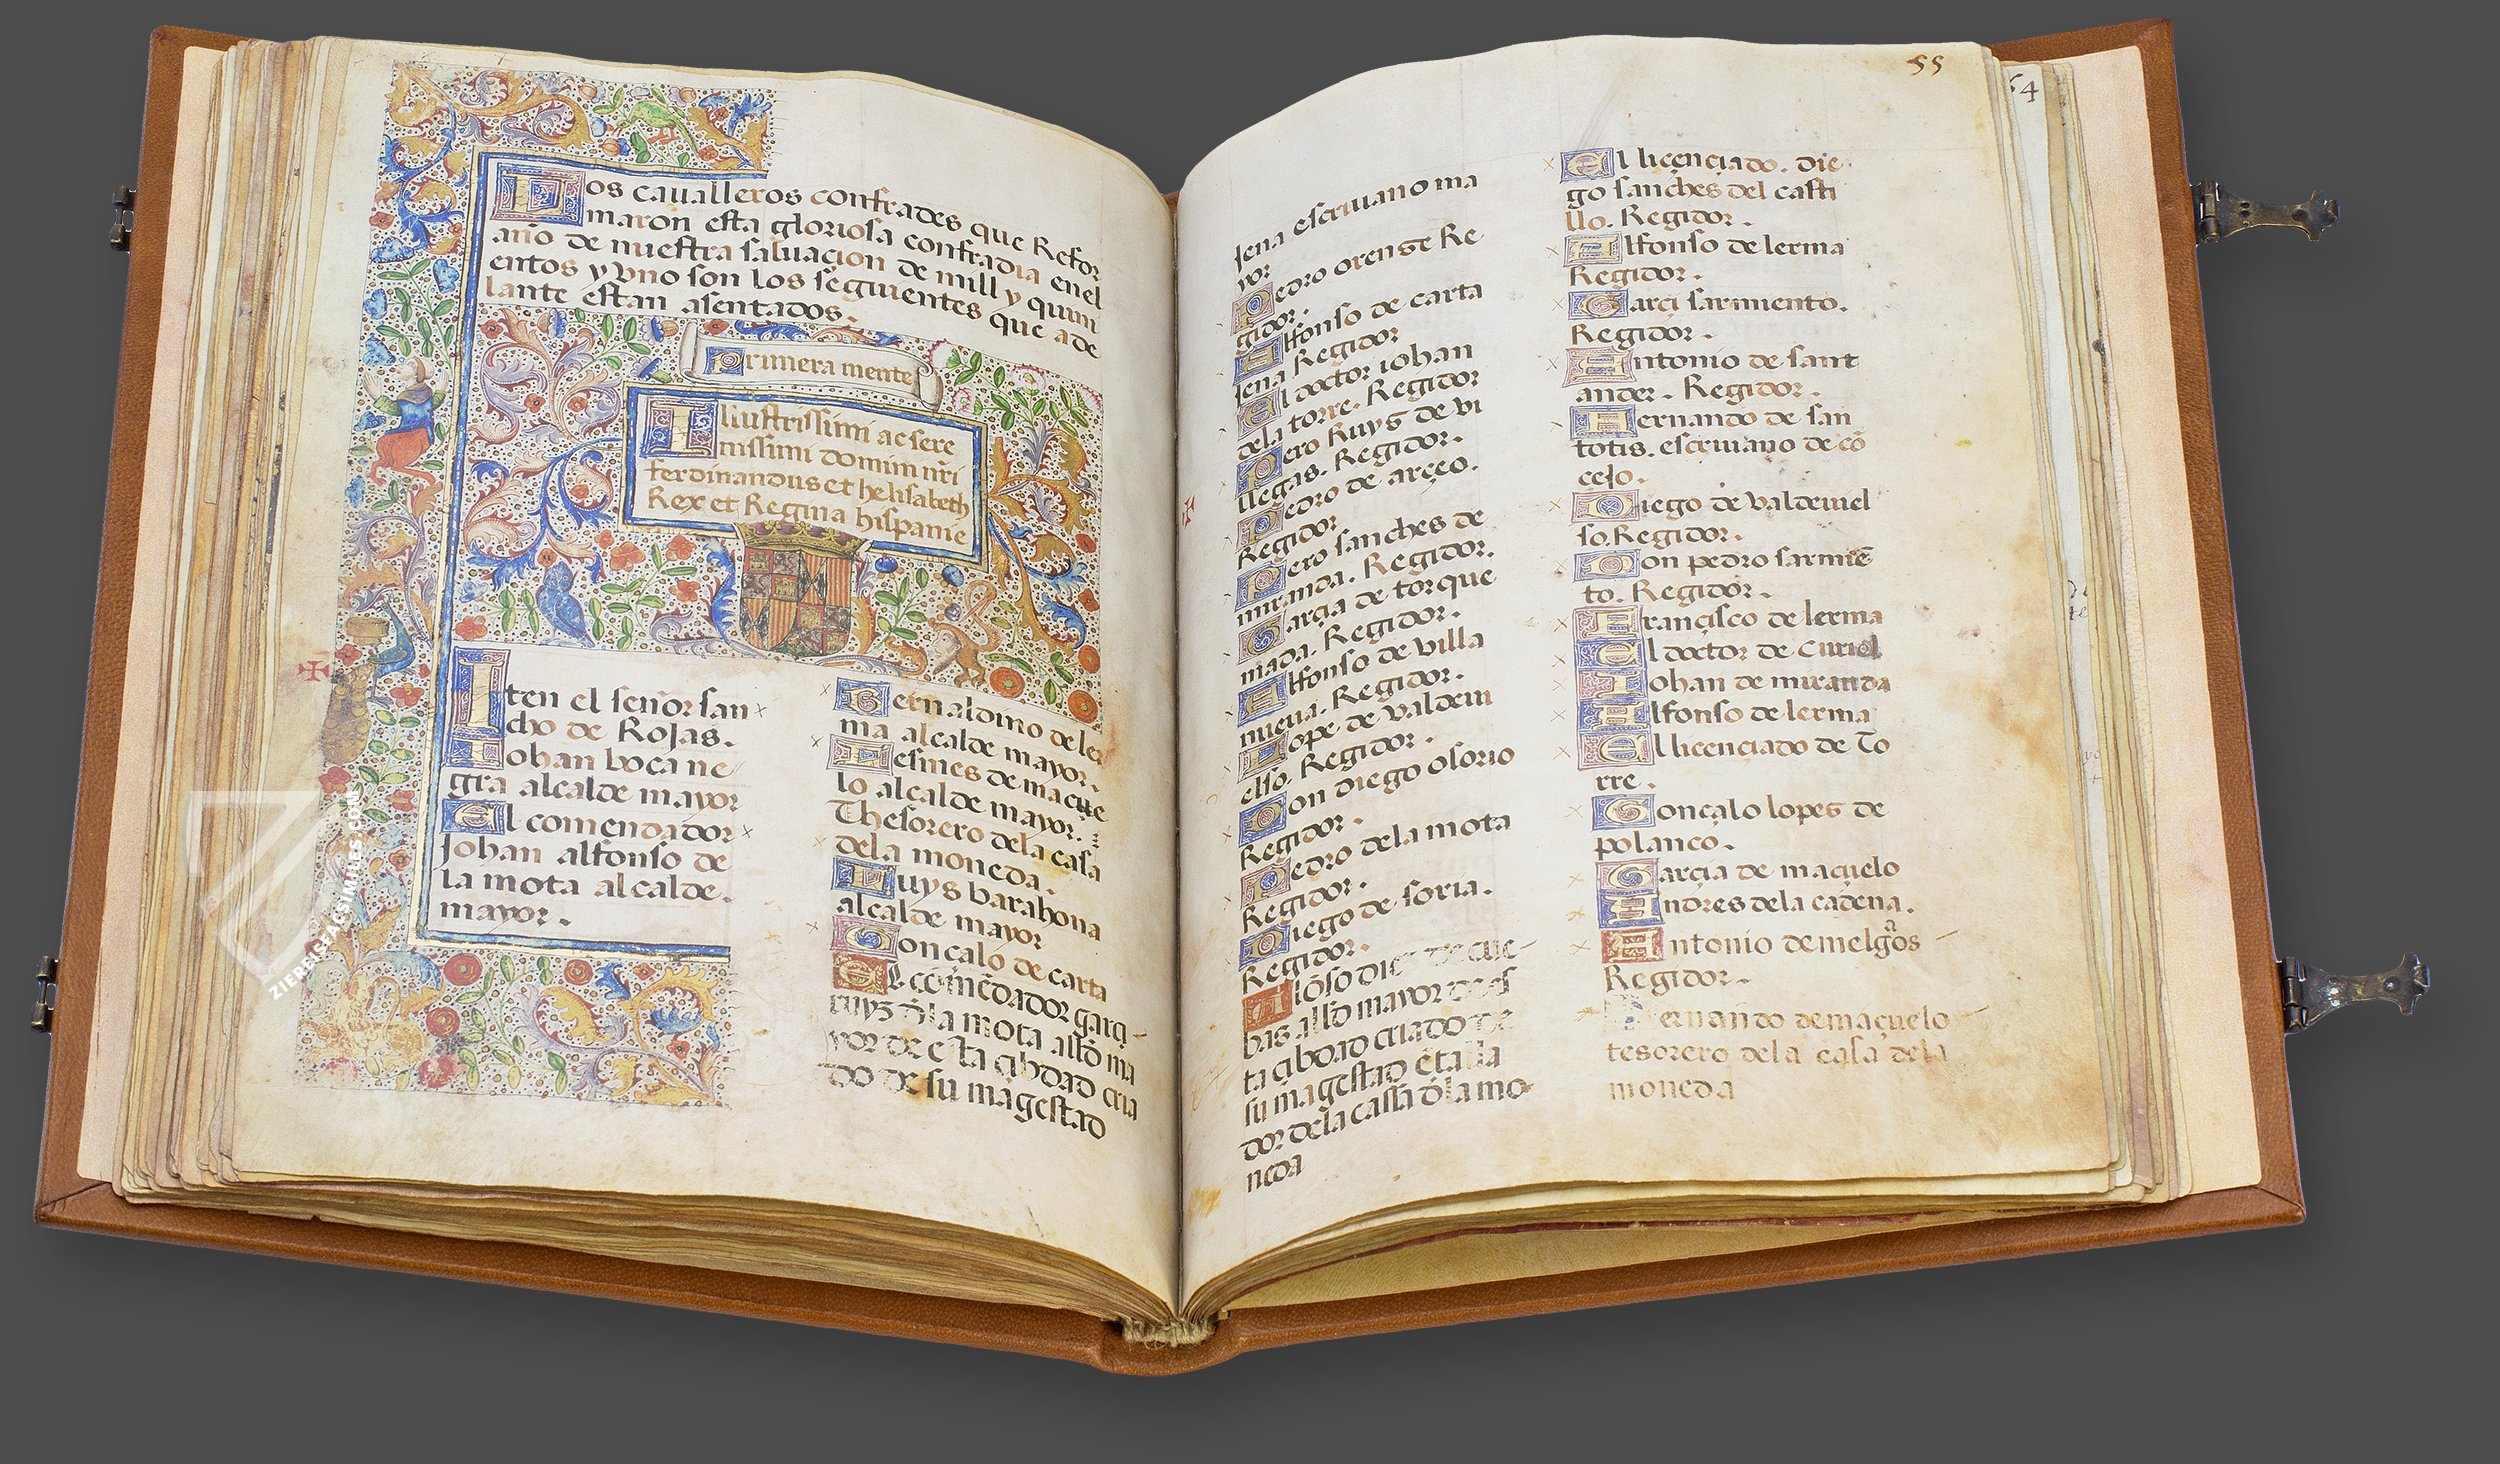 Los caualleros confrades que Refor
maron esta gloriosa confradia enel
año de nuestra saluaçion de mill y quini
entos y vno son los seguientes que ade
lante estan asentados.
primera mente
Illustrissimi ac sere
nissimi domini nri
ferdinandus et helisabeth
Rex et Regina hispanie
Iten el señor san
cho de Rojas.
Iohan boca ne
gra alcalde mayor
El comendador
Johan alfonso de
la mota alcalde.
mayor.
Bernaldino de ler
ma alcalde mayor.
Gesmes de maçue
lo alcalde mayor.
Thesorero dela casa
dela moneda.
Ruys barahona
alcalde mayor
Gonçalo de carta
El comẽdador garçi
ruyz đla mota allđ ma
yor de esta çibdad cria
do de su magestad
55
jena escriuano ma
yor
Pedro orense Re
gidor.
Alfonso de carta
jena Regidor
El doctor iohan
dela torre. Regidor
Pero Ruys de vi
llegas. Regidor.
Pedro de arçeo.
Regidor
Pero sanches de
miranda. Regidor.
Garçia de torque
mada. Regidor.
Alfonso de villa
nueua. Regidor.
Lope de valdeui
elso. Regidor.
Don diego osorio
Regidor.
Pedro dela mota
Regidor.
Diego de soria.
Regidor.
Alõso diez de cue
bas allđ mayor de es
ta çibdad criado de
su magestad e talla
dor dela cassa đla mo
neda
El liçençiado. die
go sanches del casti
llo. Regidor.
Alfonso de lerma
Regidor.
Garçi sarmiento.
Regidor.
Antonio de sant
ander. Regidor.
Hernando de san
totis. escriuano de cõ
çejo.
Diego de valdeuiel
so. Regidor.
Don pedro sarmiẽ
to. Regidor.
Françisco de lerma
El doctor de Curiel
Iohan de miranda
Alfonso de lerma
El liçençiado de To
rre.
Gonçalo lopes de
polanco.
Garçia de maçuelo
Andres dela cadena.
Antonio de melgosa
Regidor.
Fernando de maçuelo
tesorero dela casa dela
moneda
54
ZIEREISFACSIMILES.COM